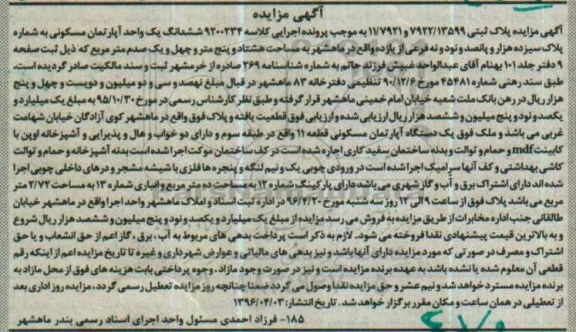 آگهی مزایده
آگهی مزایده پلاک ثبتی ۷۹۲۲/۱۳۵۹۹ و ۱۱/۷۹۲۱ به موجب پرونده اجرایی کلاسه ۹۲۰۰۲۳۴ ششدانگ یک واحد آپارتمان مسکونی به شماره
پلاک سیزده هزار و پانصد و نود و نه فرعی از یازده واقع در ماهشهر به مساحت هشتاد و پنج متر و چهل و یک صدم متر مربع که ذیل ثبت صفحه
۹ دفتر جلد ۱۰۱ بهنام آقای عبدالواحد غبیش فرزند حاتم به شماره شناسنامه ۲۶۹ صادره از خرمشهر ثبت و سند مالکیت صادر گردیده است،
طبق سند رهنی شماره ۴۵۴۸۱ مورخ ۹۰/۱۲/۶ تنظیمی دفتر خانه ۸۳ ماهشهر در قبال مبلغ نهصد و سی و دو میلیون و دویست و چهل و پنج
هزار ریال در رهن بانک ملت شعبه خیابان امام خمینی ماهشهر قرار گرفته و طبق نظر کارشناس رسمی در مورخ ۹۵/۱۰/۳۰ به مبلغ یک میلیارد و
یکصد و نود و پنج میلیون و ششصد هزار ریال ارزیابی شده و ارزیابی فوق قطعیت یافته و پلاک فوق واقع در ماهشهر کوی آزادگان خیابان شهامت
غربی می باشد و ملک فوق یک دستگاه آپارتمان مسکونی قطعه ۱۱ واقع در طبقه سوم و دارای دو خواب و هال و پذیرایی و آشپزخانه اوپن با
کابینت mdf و حمام و توالت بدنه ساختمان سفید کاری اجاره شده است در کف ساختمان موکت اجرا شده است بدنه آشپزخانه و حمام و توالت
کاشی بهداشتی و کف آنها سرامیک اجرا شده است در ورودی چوبی یک و نیم لنگه و پنجره ها فلزی با شیشه مشجر و درهای داخلی چوبی اجرا
شده اند دارای اشتراک برق و آب و گاز شهری می باشد دارای پارکینگ شماره ۱۳ به مساحت ده متر مربع و انباری شماره ۱۳ به مساحت ۲/۷۲ متر
مربع می باشد پلاک فوق از ساعت ۹ الی ۱۲ روز سه شنبه مورخ ۹۶/۴/۲۰ در اداره ثبت اسناد و املاک ماهشهر واحد اجرا واقع در ماهشهر خیابان
طالقانی جنب اداره مخابرات از طریق مزایده به فروش می رسد مزایده از مبلغ یک میلیارد و یکصد و نود و پنج میلیون و ششصد هزار ریال شروع
و به بالاترین قیمت پیشنهادی نقدا فروخته می شود. لازم به ذکر است پرداخت بدهی های مربوط به آب، برق، گاز اعم از حق انشعاب و یا حق
اشتراک و مصرف در صورتی که مورد مزایده دارای آنها باشد و نیز بدهی های مالیاتی و عوارض شهرداری و غیره تا تاریخ مزایده اعم از اینکه رقم
قطعی آن معلوم شده یا نشده باشد به عهده برنده مزایده است و نیز در صورت وجود مازاد، وجوه پرداختی بابت هزینه های فوق از محل مازاد به
برنده مزایده مسترد خواهد شد و نیم عشر و حق مزایده نقدا وصول می گردد ضمنا چنانچه روز مزایده تعطیل رسمی گردد، مزایده روز اداری بعد
از تعطیلی در همان ساعت و مکان مقرر برگزار خواهد شد. تاریخ انتشار: ۱۳۹۶/۰۴/۰۳
۱۸۵- فرزاد احمدی مسئول واحد اجرای اسناد رسمی بندر ماهشهر